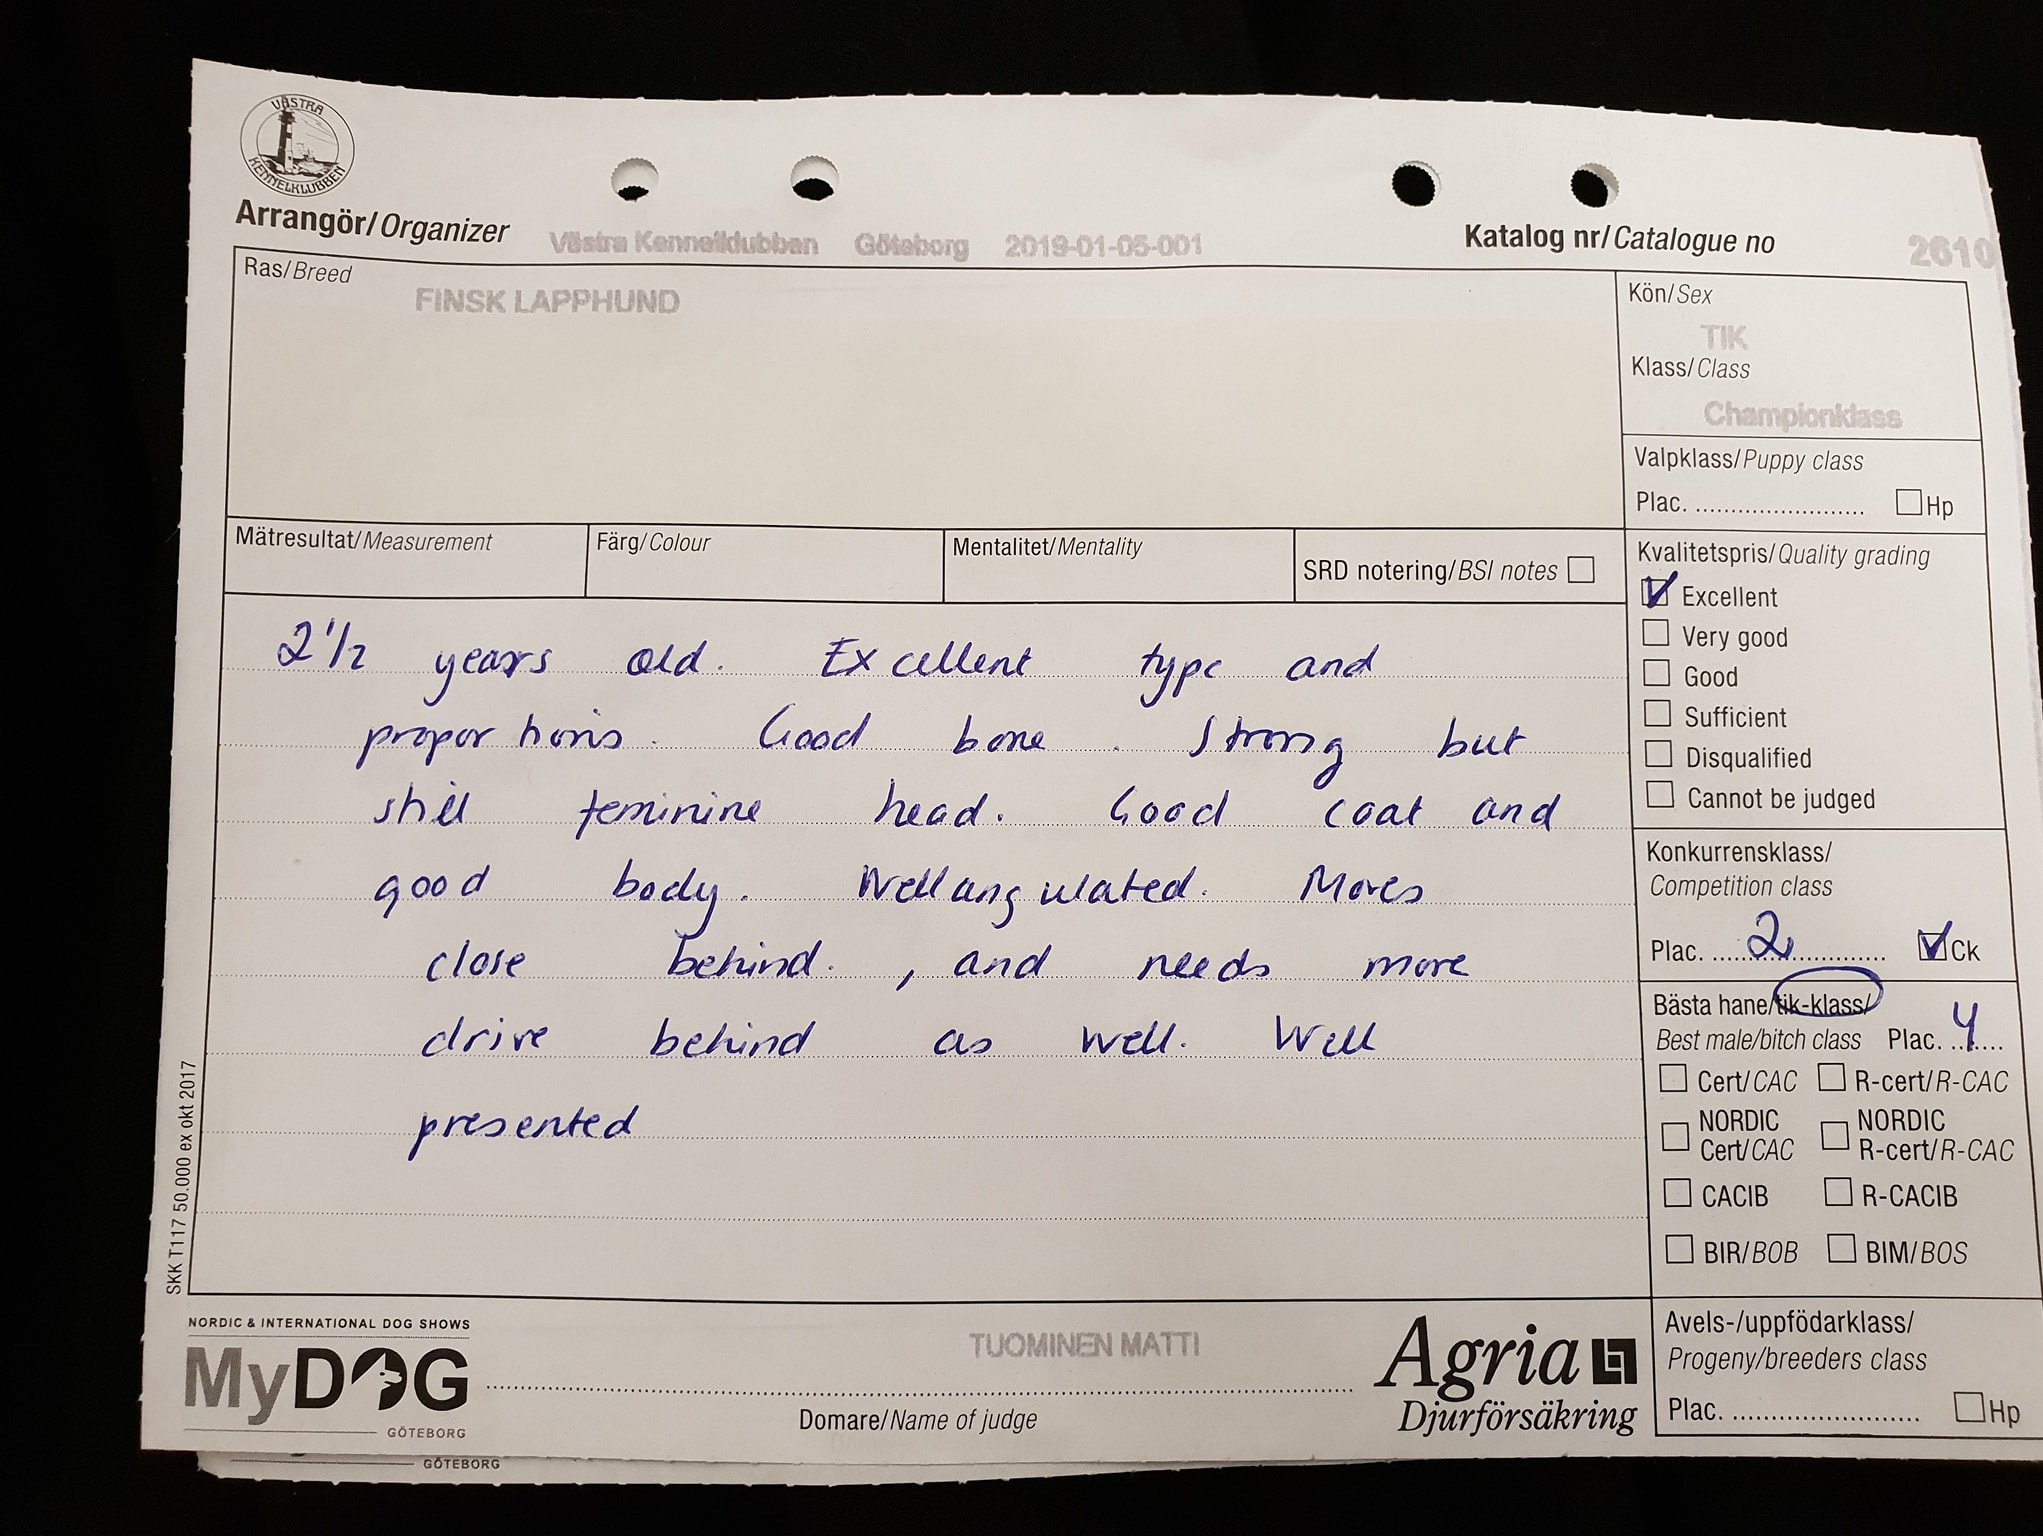 VÄSTRA
KENNELKLUBBEN
Arrangör/Organizer Västra Kennelklubben Göteborg 2019-01-05-001 Katalog nr/Catalogue no 2610
Ras/Breed
FINSK LAPPHUND
Kön/Sex
TIK
Klass/Class
Championklass
Valpklass/Puppy class
Plac. ........................ Hp
Mätresultat/Measurement Färg/Colour Mentalitet/Mentality SRD notering/BSI notes
Kvalitetspris/Quality grading
Excellent
Very good
Good
Sufficient
Disqualified
Cannot be judged
2 1/2 years old. Excellent type and
proportions. Good bone. Strong but
still feminine head. Good coat and
good body. Well angulated. Moves
close behind. , and needs more
drive behind as well. Well
presented
Konkurrensklass/
Competition class
Plac. 2 Ck
Bästa hane/tik-klass/
Best male/bitch class Plac. 4
Cert/CAC R-cert/R-CAC
NORDIC Cert/CAC NORDIC R-cert/R-CAC
CACIB R-CACIB
BIR/BOB BIM/BOS
Avels-/uppfödarklass/
Progeny/breeders class
Plac. ........................... Hp
SKK T117 50.000 ex okt 2017
NORDIC & INTERNATIONAL DOG SHOWS
MyDOG
GÖTEBORG
TUOMINEN MATTI
Domare/Name of judge
Agria
Djurförsäkring
GÖTEBORG